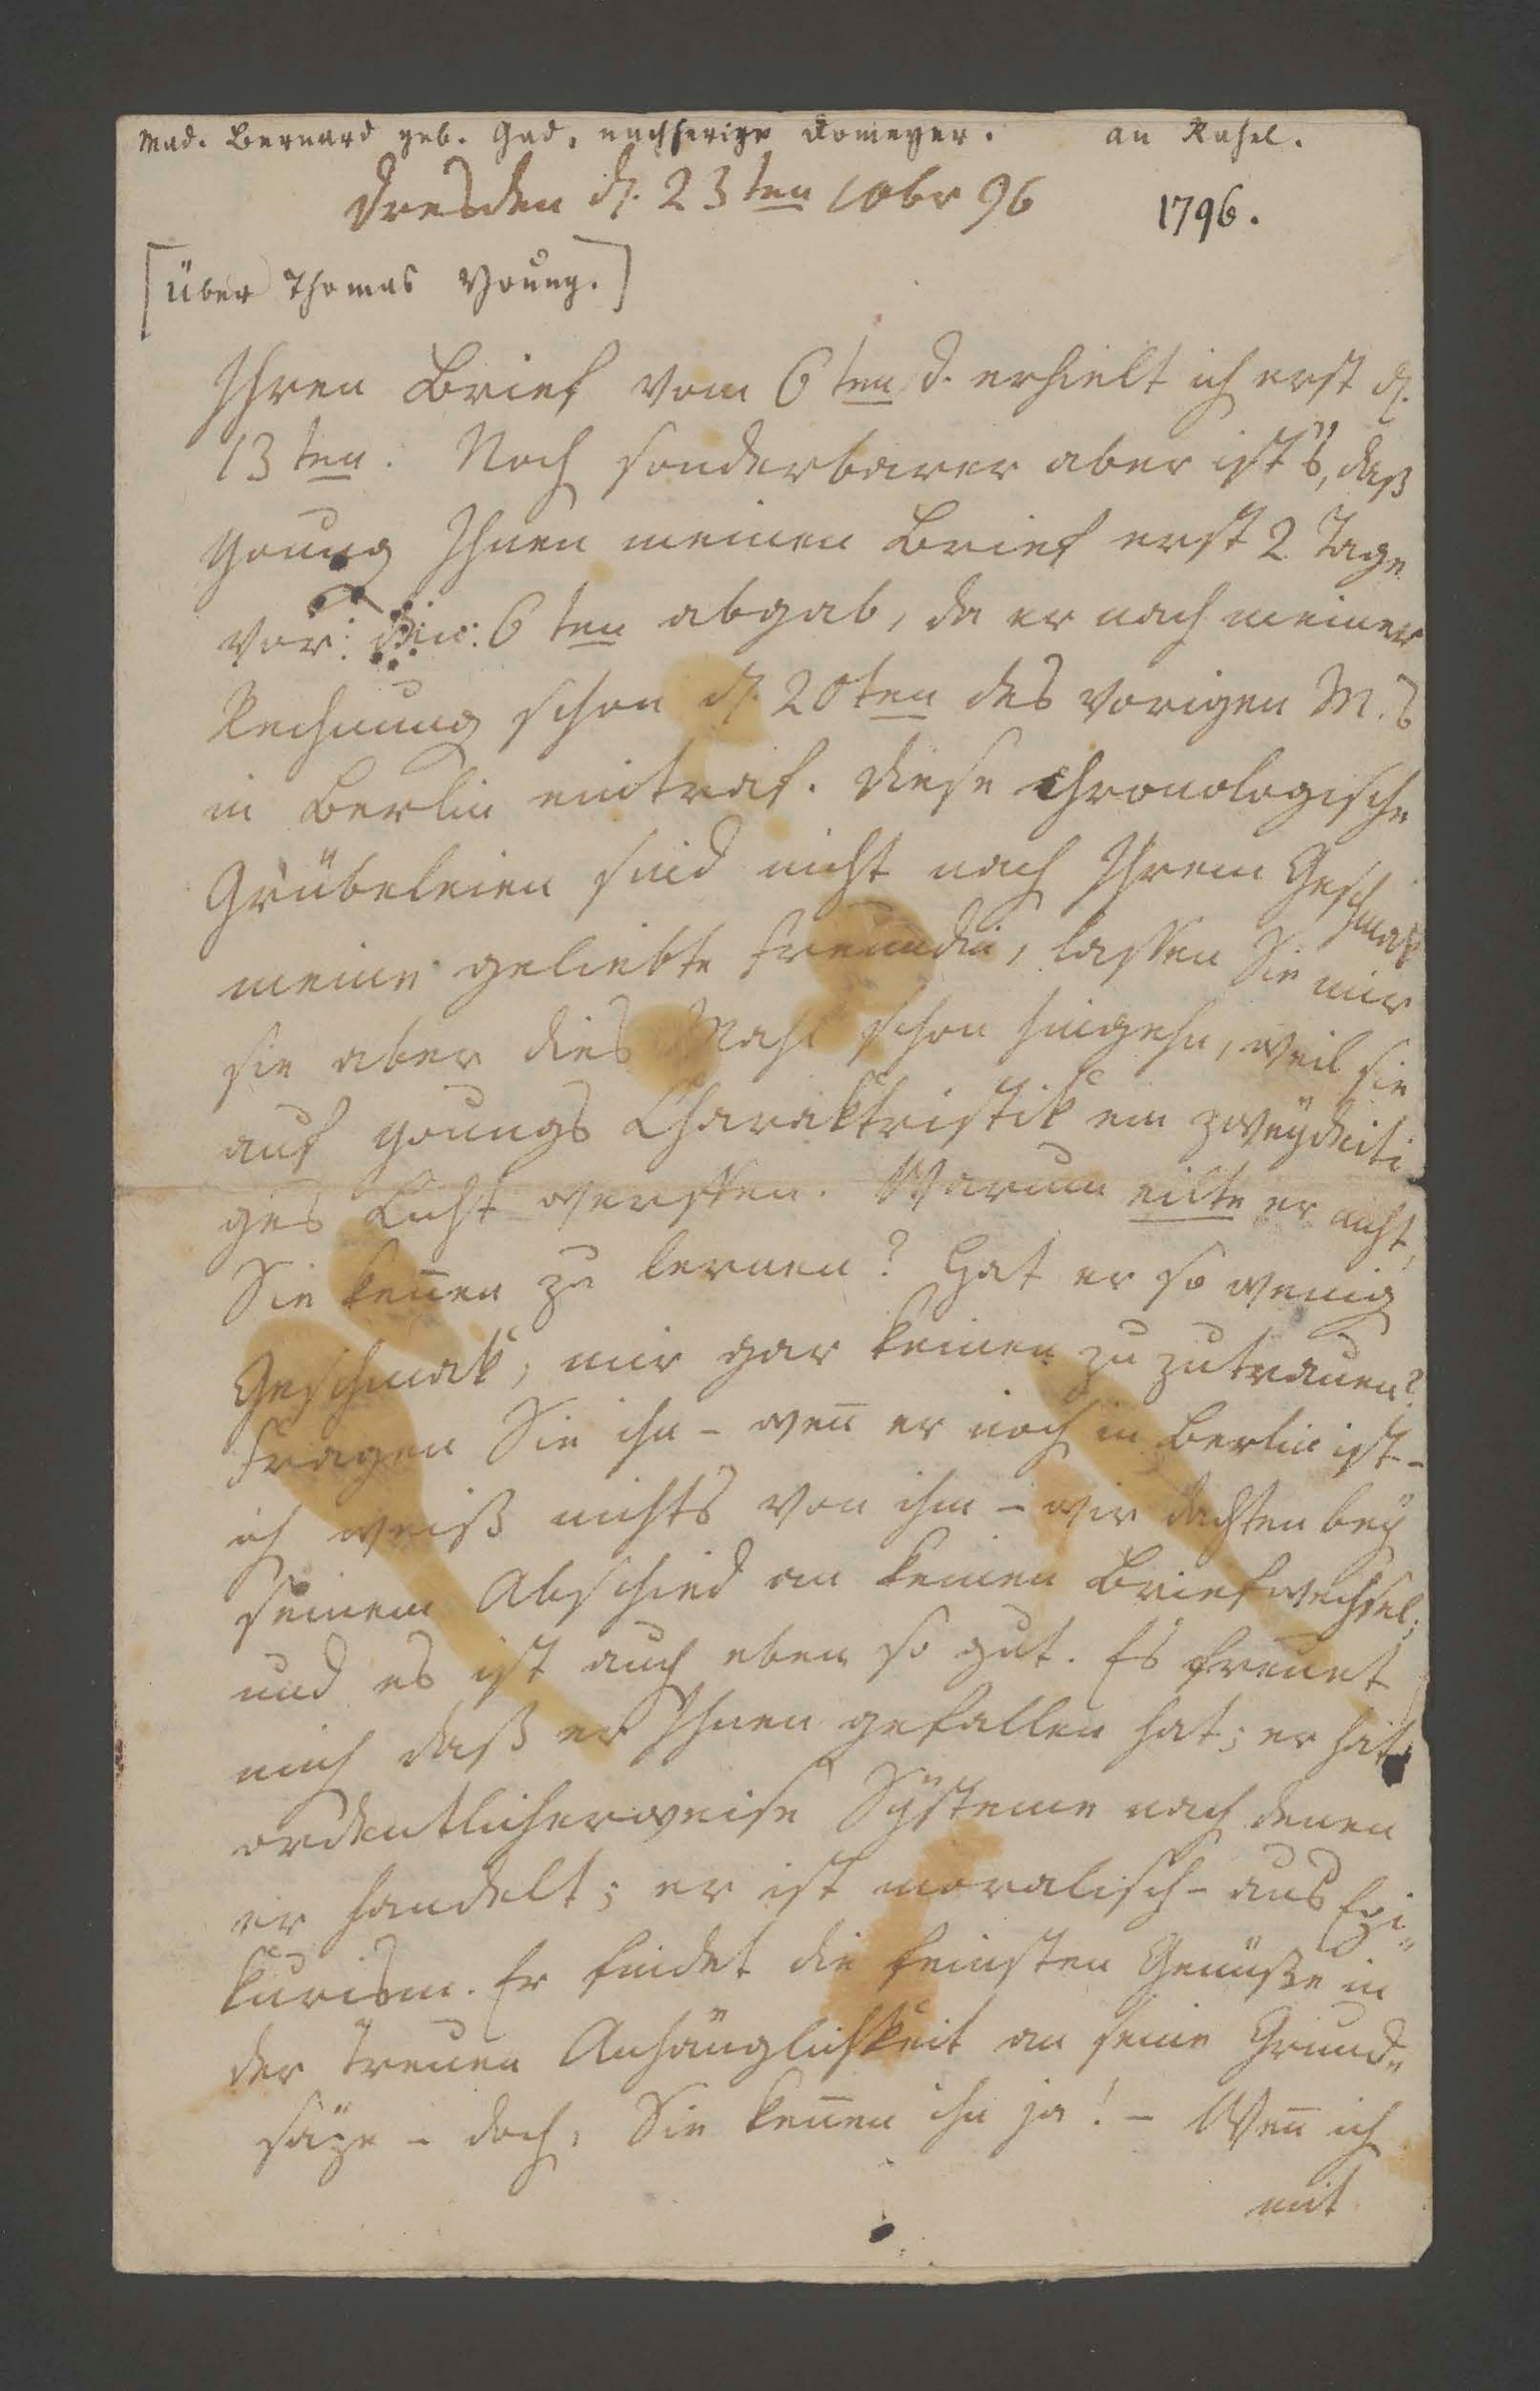 Mad. Bernard geb. Gad, nachherige Domeyer. an Rahel.
Dresden d. 23ten 10br 96 1796.
[Über Thomas Young.]
Ihren Brief vom 6ten d. erhielt ich erst d.
13ten. Noch sonderbarer aber ist's, daß
Young Ihnen meinen Brief erst 2 Tage
vor: den: 6ten abgab, da er nach meiner
Rechnung schon d. 20ten des vorigen M.s
in Berlin eintraf. Diese chronologische
Grübeleien sind nicht nach Ihrem Geschmak
meine geliebte Freundin, lassen Sie mir
sie aber dies Mahl schon hingehn, weil sie
auf Youngs Charaktristik ein zweydeuti
ges Licht werffen. Warum eilte er nicht,
Sie keñen zu lernen? Hat er so wenig
Geschmak, mir gar keinen zu zutrauen?
Fragen Sie ihn – weñ er noch in Berlin ist –
ich weiß nichts von ihm – wir dachten bey
seinem Abschied an keinen Briefwechsel;
und es ist auch eben so gut. Es freuet
mich daß er Ihnen gefallen hat; er hat
ordentlicherweise Systeme nach denen
er handelt; er ist moralisch – aus Epi„
kurism. Er findet die feinsten Genüße in
der treuen Anhänglichkeit an seine Grund„
säze – doch, Sie keñen ihn ja! – Weñ ich
mit